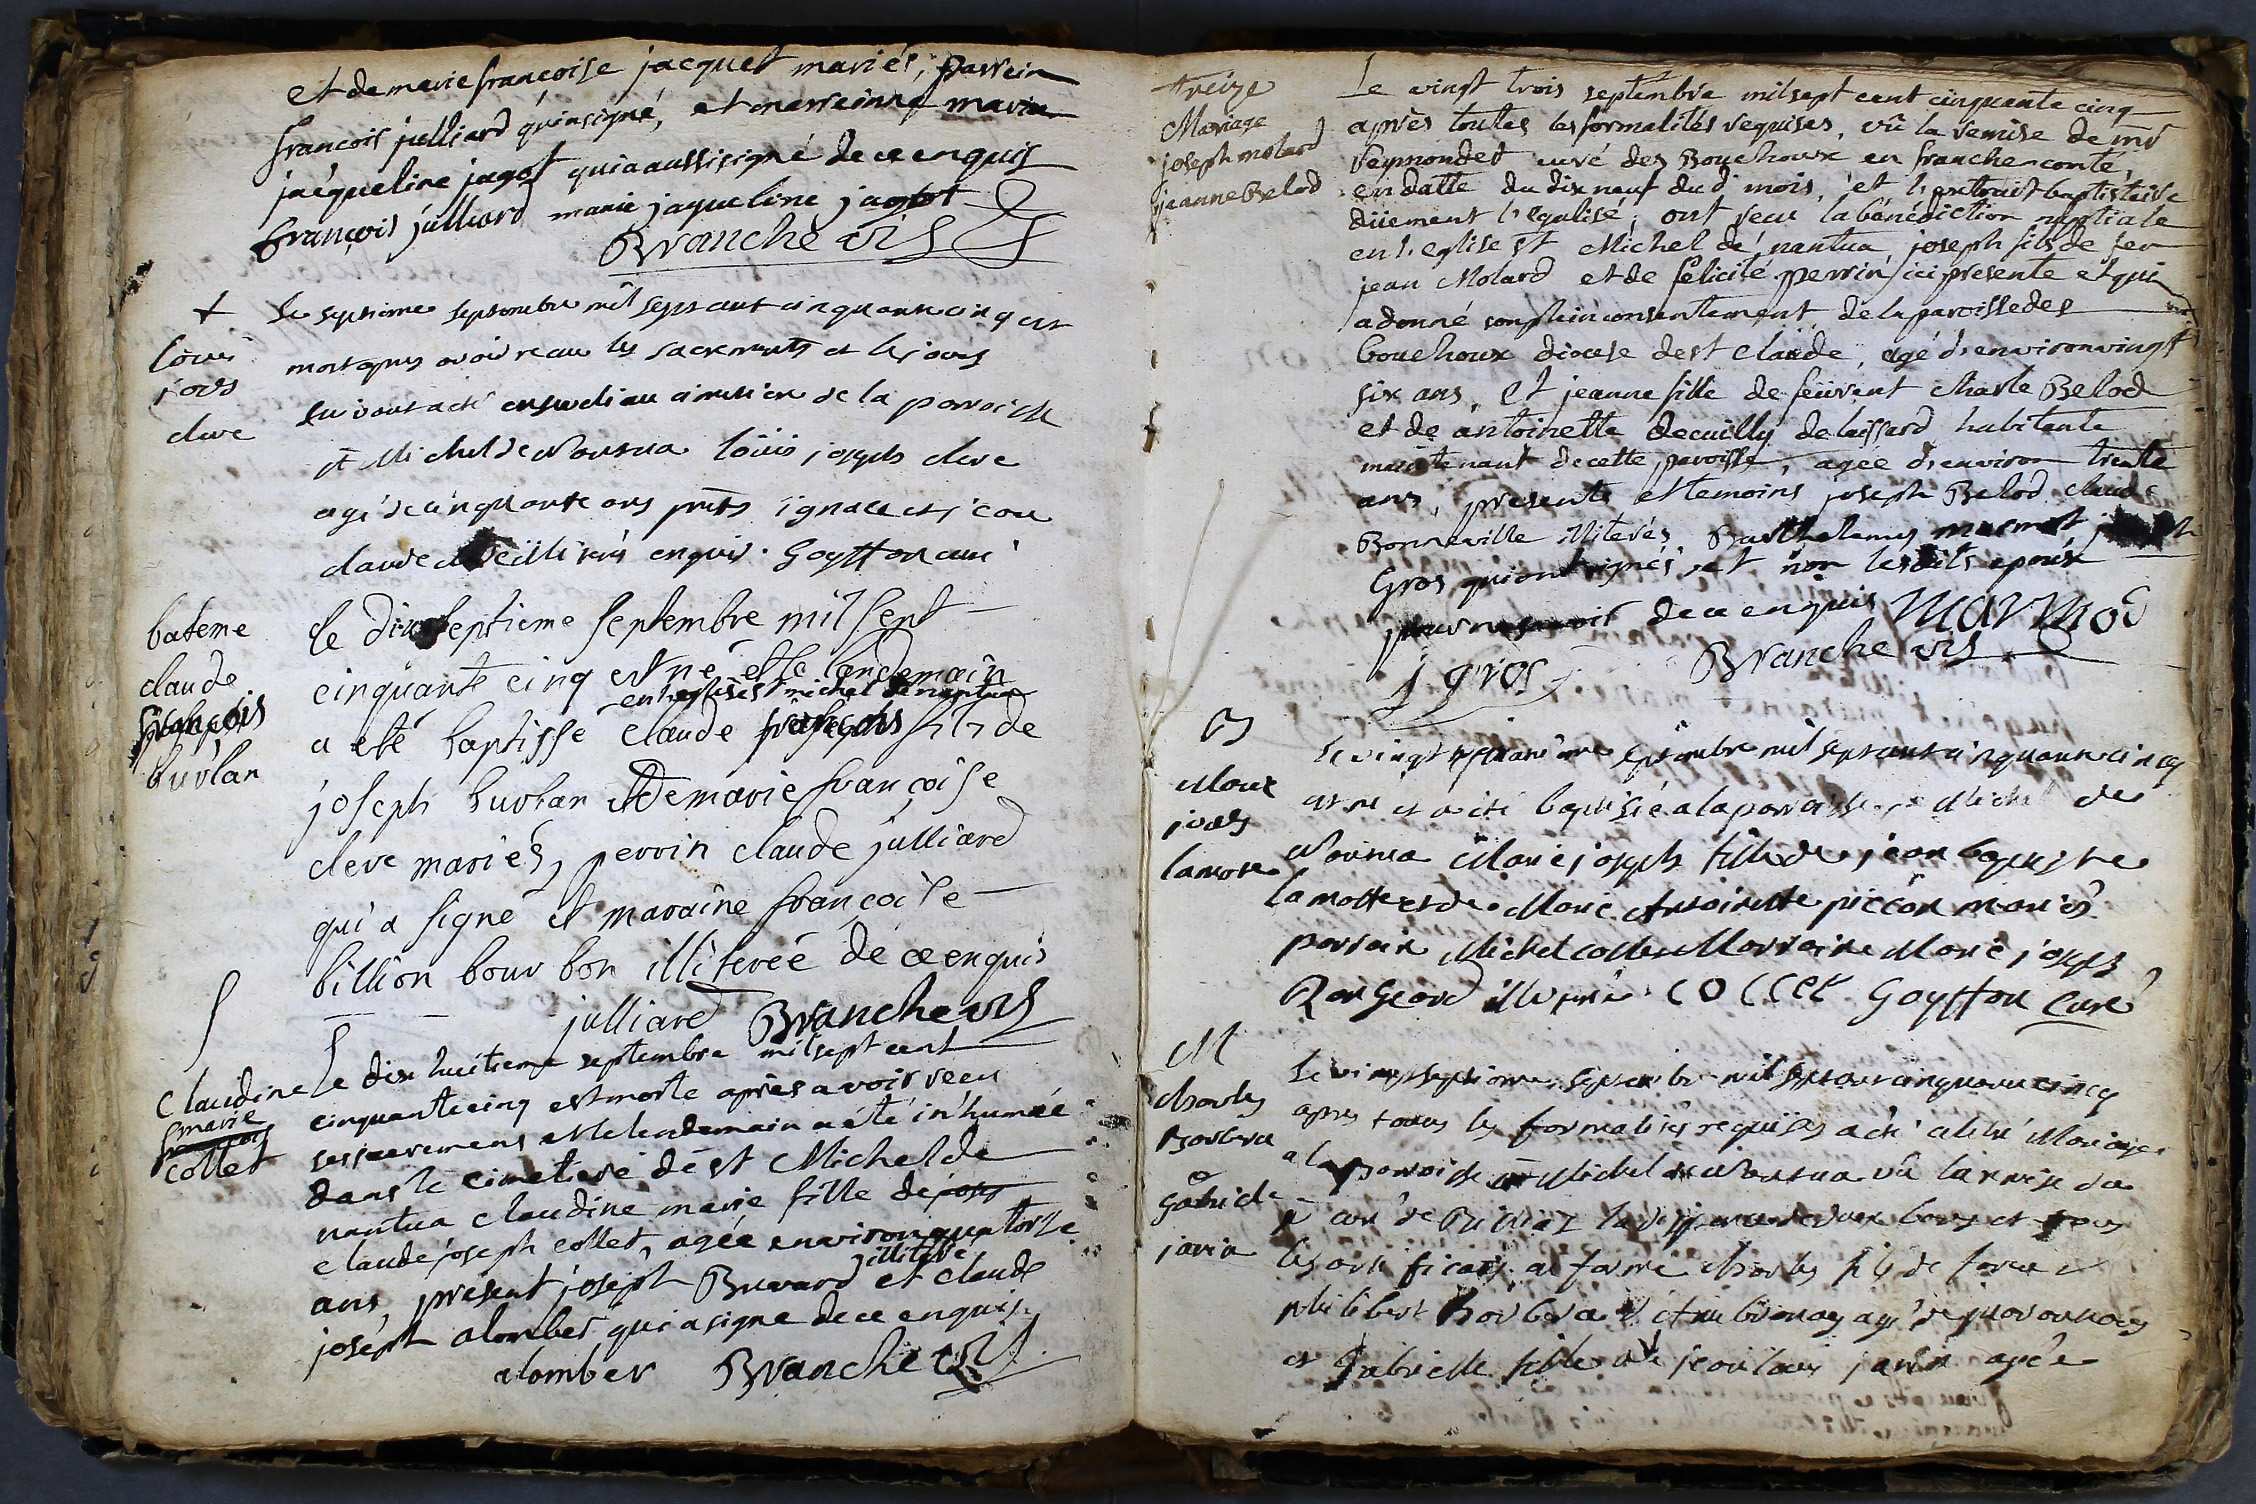 et de marie françoise jacquet mariés, parrein
françois julliard qui a signé, et marreinne marie
jacqueline jagot qui a aussi signé de ce enquis
françois julliard marie jaqueline jagot
Branche vis
+
Le septieme septembre mil sept cent cinquante cinq est
loüis
mort apres avoir receu les sacrements et le jour
suivant a été enseveli au cimetiere de la paroisse
cleve
st Michel de Nantua loüis joseph cleve
agé de cinquante ans prets ignace et jean
claude enquis. Goyffon curé
bateme
le dix septieme septembre mil sept
claude
cinquante cinq est né et le lendemain
en leglise st michel de nantua
françois
a eté baptissé claude françois fils de
burlan
joseph burlan et de marie françoise
cleve mariés, perrin claude julliard
qui a signé et maraine françoise
billion bourbon illiterée de ce enquis
julliard Branche vis
Claudine
Le dix huitieme septembre mil sept cent
marie
cinquante cinq est morte après avoir receu
collet
ses sacremens et le lendemain a été inhumée
dans le cimetiere de st Michel de
nantua claudine marie fille de
claude joseph collet, agée environ quatorse
illiteré
ans, présent joseph Buvard et claude
joseph alomber qui a signe de ce enquis
alomber Branche vis
treize
Le vingt trois septembre mil sept cent cinquante cinq
Mariage
après toutes les formalités requises, vû la remise de mr
joseph molard
Reymondet curé des Bouchoux en franche-comté,
jeanne Belod
en datte du dix neuf dud mois, et l'extrait baptistaire
düement légalisé, ont receu la bénédiction nuptiale
en l'eglise st Michel de nantua joseph fils de feu
jean Molard et de felicité perrin ici presente et qui
a donné son plein consentement de la paroisse des
bouchoux diocese de st claude, agé d'environ vingt
six ans, et jeanne fille de feu Charle Belod
et de antoinette decuilly de laissard habitante
maintenant de cette paroisse, agée d'environ trente
ans, presents et temoins joseph Belod claude
Bonneville illiterés, Barthelemy marmot
Gros qui ont signés et non lesdits epoux
pour ne de ce enquis marmod
j gros Branche vis
B
le vingt septembre mil sept cent cinquante cinq
Marie
est né et a été baptisée a la paroisse st Michel de
Nantua Marie joseph fille de jean baptiste
lamotte
lamotte et de Marie Antoinette piccon mariés
parrain Michel collet Marraine Marie joseph
illiterée collet Goyffon Curé
M
Le vingt septieme septembre mil sept cent cinquante cinq
charles
apres toutes les formalités requises a été célébré Mariage
a la paroisse st Michel de Nantua vû la remise du
Gabriele
curé de la dispense de deux bans et tous
javin
les certificats en forme charles fils de
philibert agé de
et Gabrielle fille de jean louis javin agée